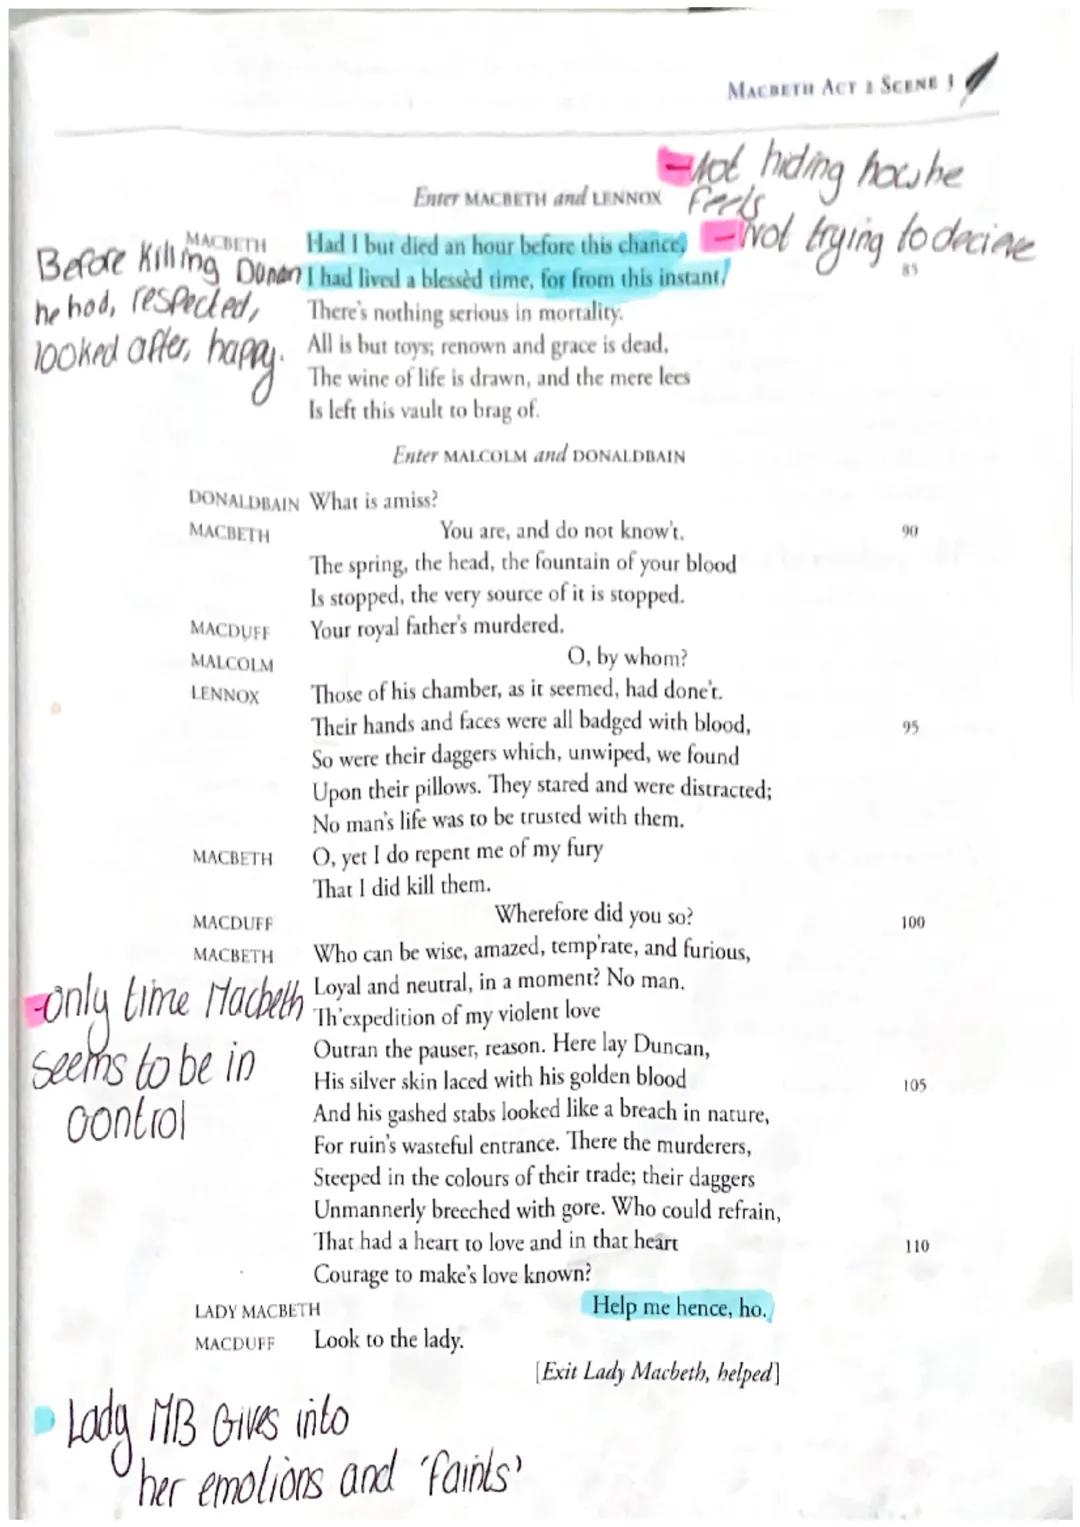 MACBETH ACT 2 SCENE 3
-Not hiding how he
feels
-Not trying to decieve
Enter MACBETH and LENNOX
MACBETH Had I but died an hour before this chance,
I had lived a blessèd time, for from this instant, 85
There's nothing serious in mortality.
All is but toys; renown and grace is dead,
The wine of life is drawn, and the mere lees
Is left this vault to brag of.
Before Killing Duncan
he had, respected,
looked after, happy.
Enter MALCOLM and DONALDBAIN
DONALDBAIN What is amiss?
MACBETH You are, and do not know't. 90
The spring, the head, the fountain of your blood
Is stopped, the very source of it is stopped.
MACDUFF Your royal father's murdered.
MALCOLM O, by whom?
LENNOX Those of his chamber, as it seemed, had done't.
Their hands and faces were all badged with blood, 95
So were their daggers which, unwiped, we found
Upon their pillows. They stared and were distracted;
No man's life was to be trusted with them.
MACBETH O, yet I do repent me of my fury
That I did kill them.
MACDUFF Wherefore did you so? 100
MACBETH Who can be wise, amazed, temp'rate, and furious,
Loyal and neutral, in a moment? No man.
Th'expedition of my violent love
Outran the pauser, reason. Here lay Duncan,
His silver skin laced with his golden blood 105
And his gashed stabs looked like a breach in nature,
For ruin's wasteful entrance. There the murderers,
Steeped in the colours of their trade; their daggers
Unmannerly breeched with gore. Who could refrain,
That had a heart to love and in that heart 110
Courage to make's love known?
-only time Macbeth
seems to be in
control
LADY MACBETH Help me hence, ho.
MACDUFF Look to the lady.
[Exit Lady Macbeth, helped]
Lady MB Gives into
her emotions and 'faints'